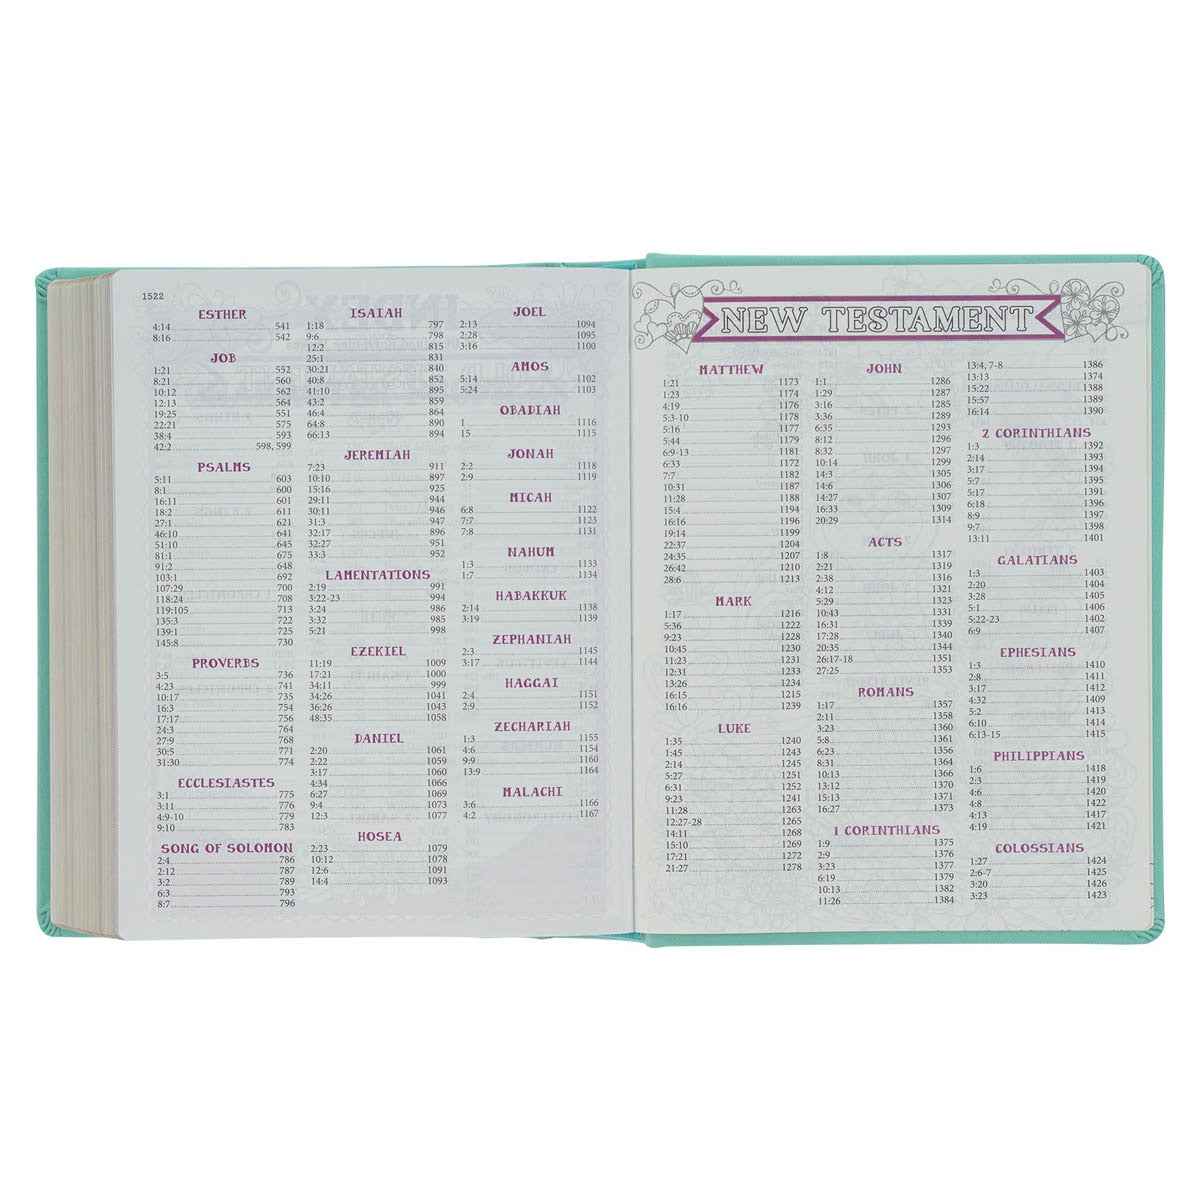 1522
ESTHER
4:14 541
8:16 542
JOB
1:21 552
8:21 560
10:12 562
12:13 564
19:25 551
22:21 575
38:4 593
42:2 598, 599
PSALMS
5:11 603
8:1 600
16:11 601
18:2 611
27:1 621
46:10 641
51:10 645
81:1 675
91:2 648
103:1 692
107:29 700
118:24 708
119:105 713
135:3 722
139:1 725
145:8 730
PROVERBS
3:5 736
4:23 741
10:17 735
16:3 754
17:17 756
24:3 764
27:9 768
30:5 771
31:30 774
ECCLESIASTES
3:1 775
3:11 776
4:9-10 779
9:10 783
SONG OF SOLOMON
2:4 786
2:12 787
3:2 789
6:3 793
8:7 796
ISAIAH
1:18 797
9:6 798
12:2 815
25:1 831
30:21 840
40:8 852
41:10 895
43:2 859
46:4 864
64:8 890
66:13 894
JEREMIAH
7:23 911
10:10 897
15:16 925
29:11 944
30:11 946
31:3 947
32:17 896
32:27 951
33:3 952
LAMENTATIONS
2:19 991
3:22-23 994
3:24 986
3:32 985
5:21 998
EZEKIEL
11:19 1009
17:21 1000
34:11 999
34:26 1041
36:26 1043
48:35 1058
DANIEL
2:20 1061
2:22 1059
3:17 1060
4:34 1066
6:27 1069
9:4 1073
12:3 1077
HOSEA
2:23 1079
10:12 1078
12:6 1091
14:4 1093
JOEL
2:13 1094
2:28 1095
3:16 1100
AMOS
5:14 1102
5:24 1103
OBADIAH
1 1116
15 1115
JONAH
2:2 1118
2:9 1119
MICAH
6:8 1122
7:7 1123
7:8 1131
NAHUM
1:3 1133
1:7 1134
HABAKKUK
2:14 1138
3:19 1139
ZEPHANIAH
2:3 1145
3:17 1144
HAGGAI
2:4 1151
2:9 1152
ZECHARIAH
1:3 1155
4:6 1154
9:9 1160
13:9 1164
MALACHI
3:6 1166
4:2 1167
NEW TESTAMENT
MATTHEW
1:21 1173
1:23 1174
4:19 1176
5:3-10 1178
5:16 1177
5:44 1179
6:9-13 1181
6:33 1172
7:7 1182
10:31 1187
11:28 1188
15:4 1194
16:16 1196
19:14 1199
22:37 1204
24:35 1207
26:42 1210
28:6 1213
MARK
1:17 1216
5:36 1222
9:23 1228
10:45 1230
11:23 1231
12:31 1233
13:26 1234
16:15 1215
16:16 1239
LUKE
1:35 1240
1:45 1243
2:14 1245
5:27 1251
6:31 1252
9:23 1241
11:28 1263
12:27-28 1265
14:11 1268
15:10 1269
17:21 1272
21:27 1278
JOHN
1:1 1286
1:29 1287
3:16 1285
3:16 1289
6:35 1293
8:12 1296
8:32 1297
10:14 1299
14:3 1305
14:6 1306
14:27 1307
16:33 1309
20:29 1314
ACTS
1:8 1317
2:21 1319
2:38 1316
4:12 1321
5:29 1323
10:43 1332
16:31 1339
17:28 1340
20:35 1344
26:17-18 1351
27:25 1353
ROMANS
1:17 1357
2:11 1358
3:23 1360
5:8 1361
6:23 1356
8:31 1364
10:13 1366
13:12 1370
15:13 1371
16:27 1373
1 CORINTHIANS
1:9 1375
2:9 1376
3:23 1377
6:19 1379
10:13 1382
11:26 1384
13:4, 7-8 1386
13:13 1374
15:22 1388
15:57 1389
16:14 1390
2 CORINTHIANS
1:3 1392
2:14 1393
3:17 1394
5:7 1395
5:17 1391
6:18 1396
8:9 1397
9:7 1398
13:11 1401
GALATIANS
1:3 1403
2:20 1404
3:28 1405
5:1 1406
5:22-23 1402
6:9 1407
EPHESIANS
1:3 1410
2:8 1411
3:17 1412
4:32 1409
5:2 1413
6:10 1414
6:13-15 1415
PHILIPPIANS
1:6 1418
2:3 1419
4:6 1420
4:8 1422
4:13 1417
4:19 1421
COLOSSIANS
1:27 1424
2:6-7 1425
3:20 1426
3:23 1423